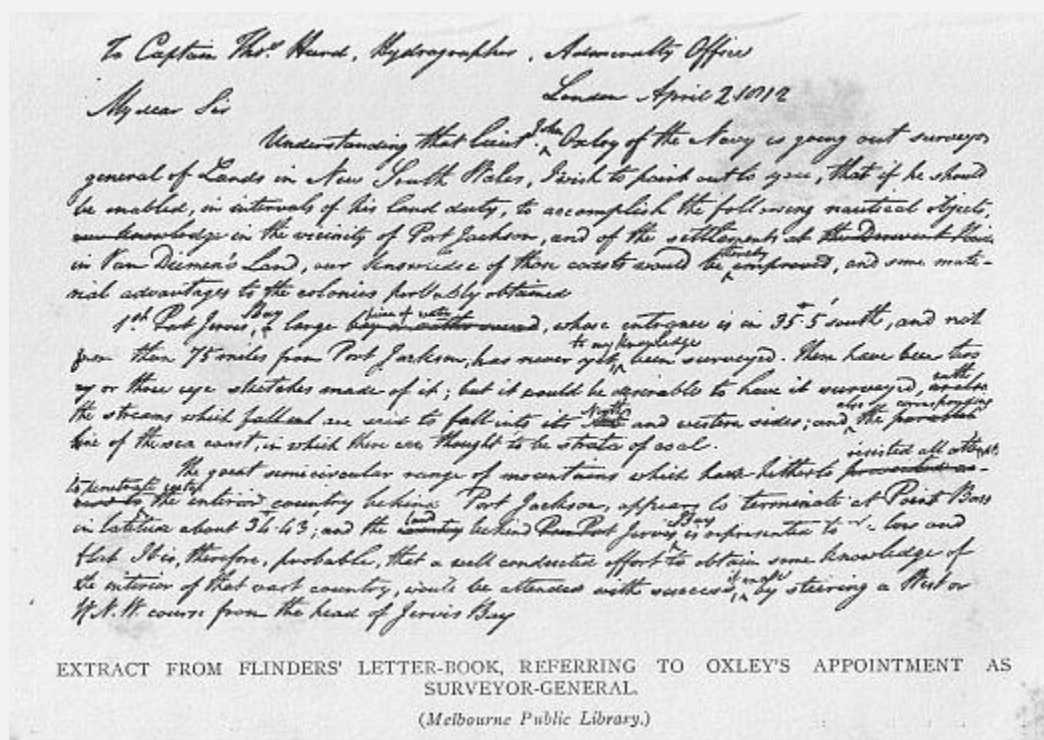 To Captain Thos. Hurd, Hydrographer, Admiralty Office
London April 2 1812
My dear Sir
Understanding that Lieut. John Oxley of the Navy is going out surveyor
general of Lands in New South Wales, I wish to point out to you, that if he should
be enabled, in intervals of his land duty, to accomplish the following nautical objects,
our knowledge in the vicinity of Port Jackson, and of the settlements at the Derwent River
in Van Diemen's Land, our knowledge of those coasts would be thereby improved, and some mate-
rial advantages to the colonies probably obtained
1st. Port Jervis, Bay a large piece of water, whose entrance is in 35° 5' south, and not
more than 75 miles from Port Jackson, has never to my knowledge yet been surveyed. There have been two
or three eye sketches made of it; but it would be desirable to have it surveyed, with
the streams which are said to fall into its North and western sides; and also the corresponding
line of the sea coast, in which there are thought to be strata of coal.
The great semicircular range of mountains which have hitherto resisted all attempts
to penetrate into the interior country behind Port Jackson, appears to terminate at Point Bass
in latitude about 34° 43'; and the land behind Port Jervis Bay is represented to low and
flat. It is, therefore, probable, that a well conducted effort to obtain some knowledge of
the interior of that vast country, would be attended with success, if made by steering a West or
W.N.W course from the head of Jervis Bay
EXTRACT FROM FLINDERS' LETTER-BOOK, REFERRING TO OXLEY'S APPOINTMENT AS
SURVEYOR-GENERAL.
(Melbourne Public Library.)